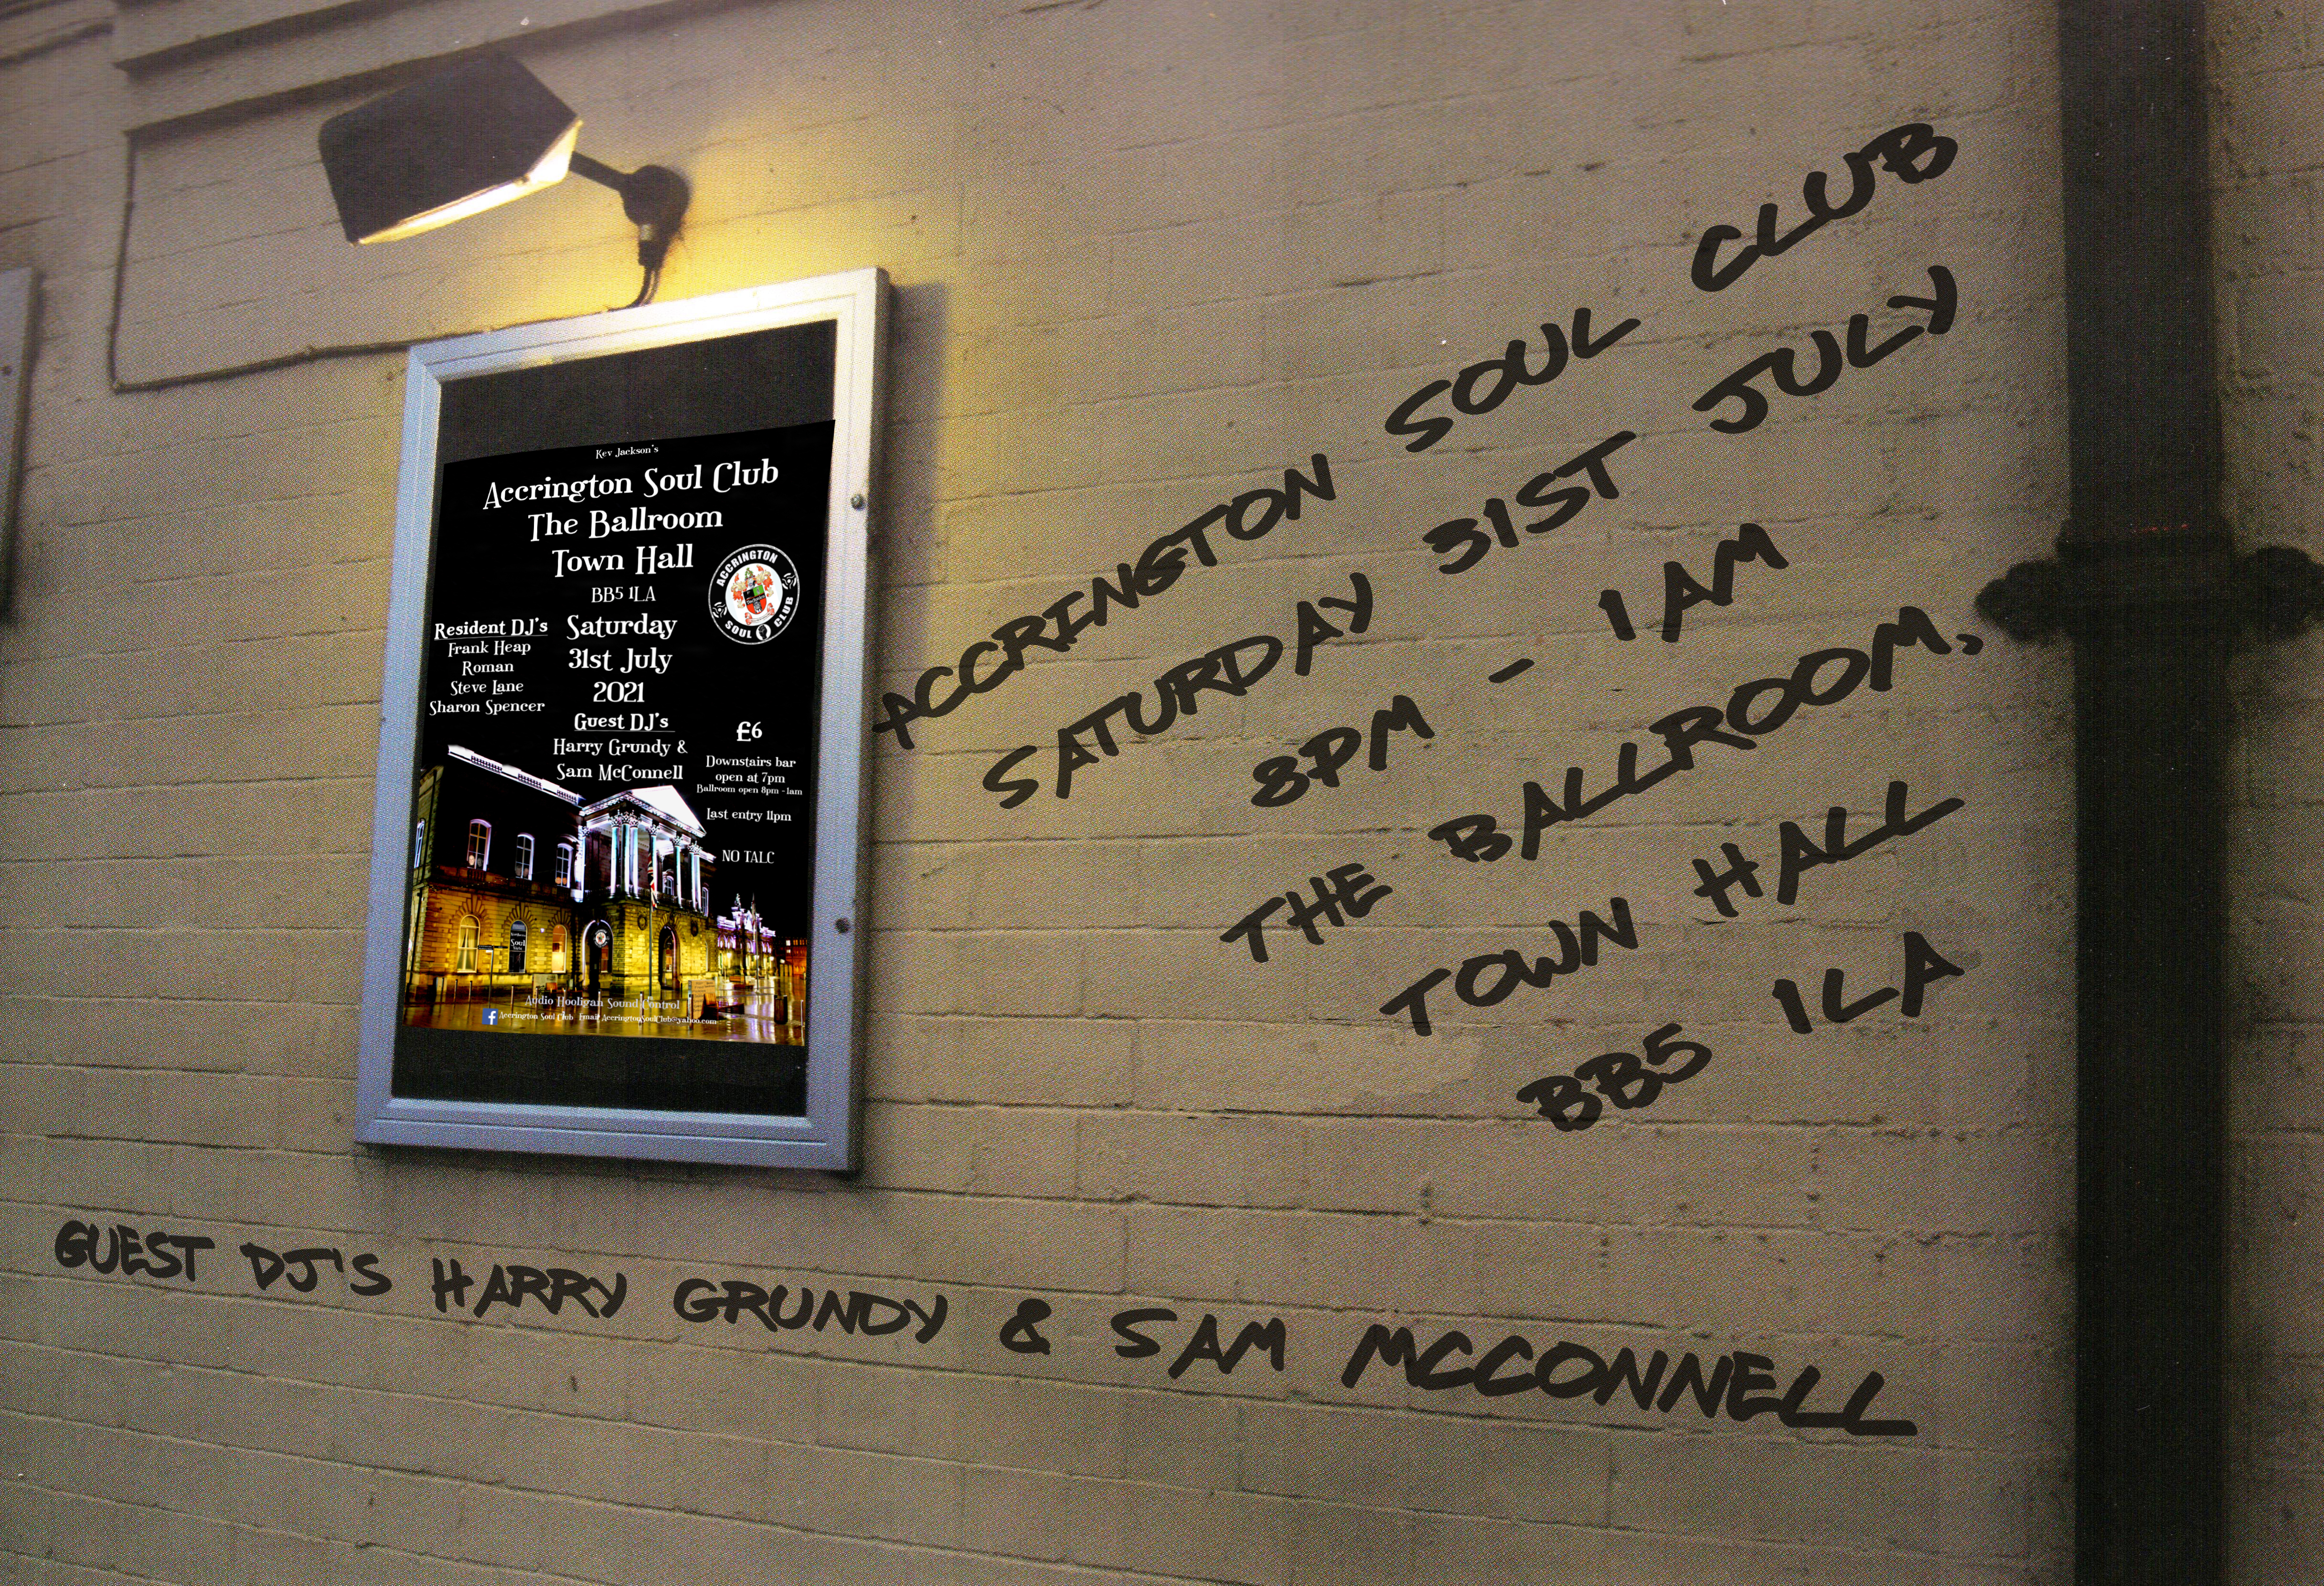 Kev Jackson's
Accrington Soul Club
The Ballroom
Town Hall
BB5 1LA
ACCRINGTON
SOUL CLUB
Saturday
31st July
2021
Resident DJ's
Frank Heap
Roman
Steve Lane
Sharon Spencer
Guest DJ's
Harry Grundy &
Sam McConnell
£6
Downstairs bar
open at 7pm
Ballroom open 8pm - 1am
Last entry 11pm
NO TALC
Soul
Audio Hooligan Sound Control
f Accrington Soul Club Email AccringtonSoulClub@yahoo.com
ACCRINGTON SOUL CLUB
SATURDAY 31ST JULY
8PM - 1AM
THE BALLROOM,
TOWN HALL
BB5 1LA
GUEST DJ'S HARRY GRUNDY & SAM MCCONNELL